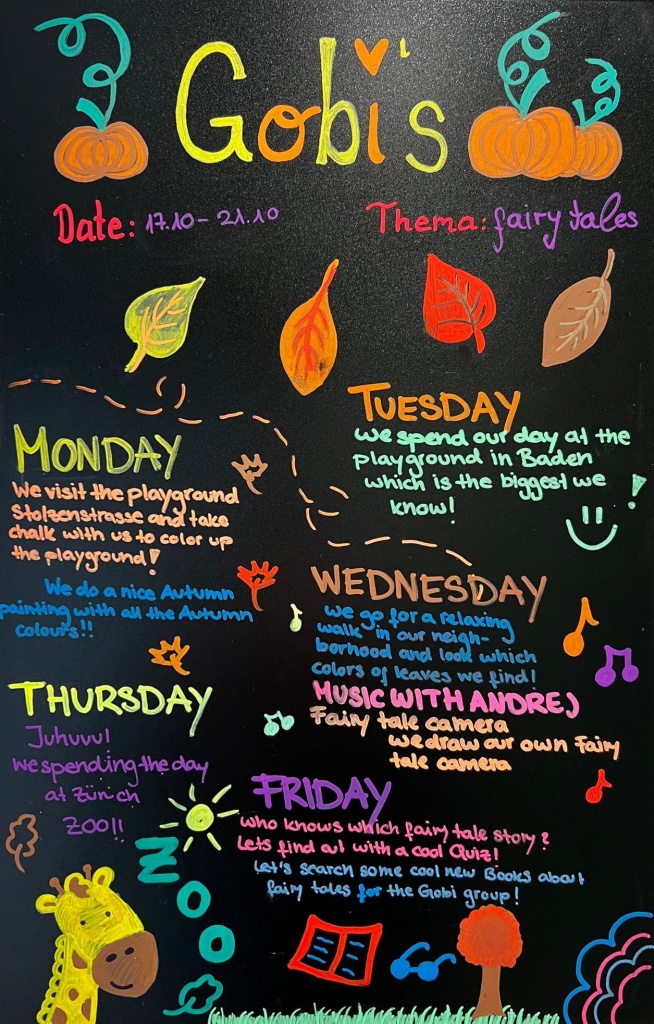 Gobi's
Date: 17.10 - 21.10
Thema: fairy tales
MONDAY
We visit the playground
Stolzenstrasse and take
chalk with us to color up
the playground!
We do a nice Autumn
painting with all the Autumn
colours!!
TUESDAY
we spend our day at the
playground in Baden
which is the biggest we
know!
WEDNESDAY
we go for a relaxing
walk in our neigh-
borhood and look which
colors of leaves we find!
MUSIC WITH ANDREJ
Fairy tale camera
we draw our own Fairy
tale camera
THURSDAY
Juhuuu!
we spending the day
at Zürich
ZOO!!
ZOO
FRIDAY
who knows which fairy tale story?
Lets find out with a cool Quiz!
Let's search some cool new Books about
fairy tales for the Gobi group!